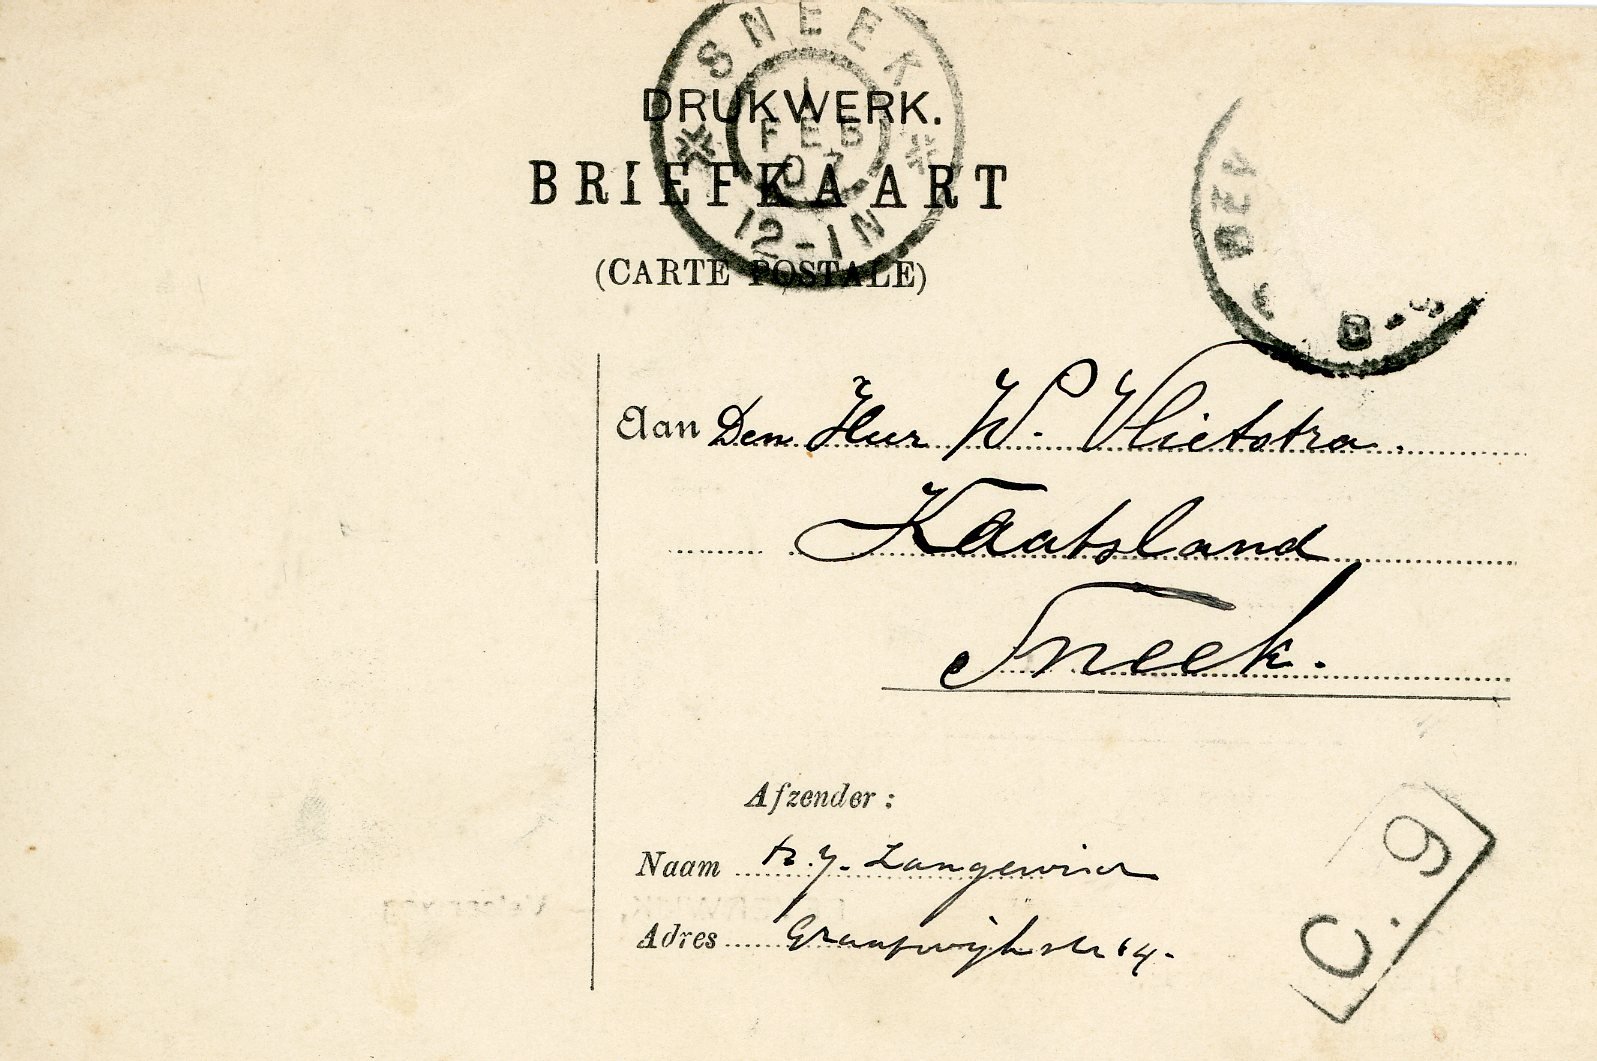 SNEEK
1
FEB
07
12-1N
DRUKWERK.
BRIEFKAART
(CARTE POSTALE)
BEV
8-9
Aan Den Heer W. Vlietstra.
Kaatsland
Sneek.
Afzender:
Naam
Adres
C.9